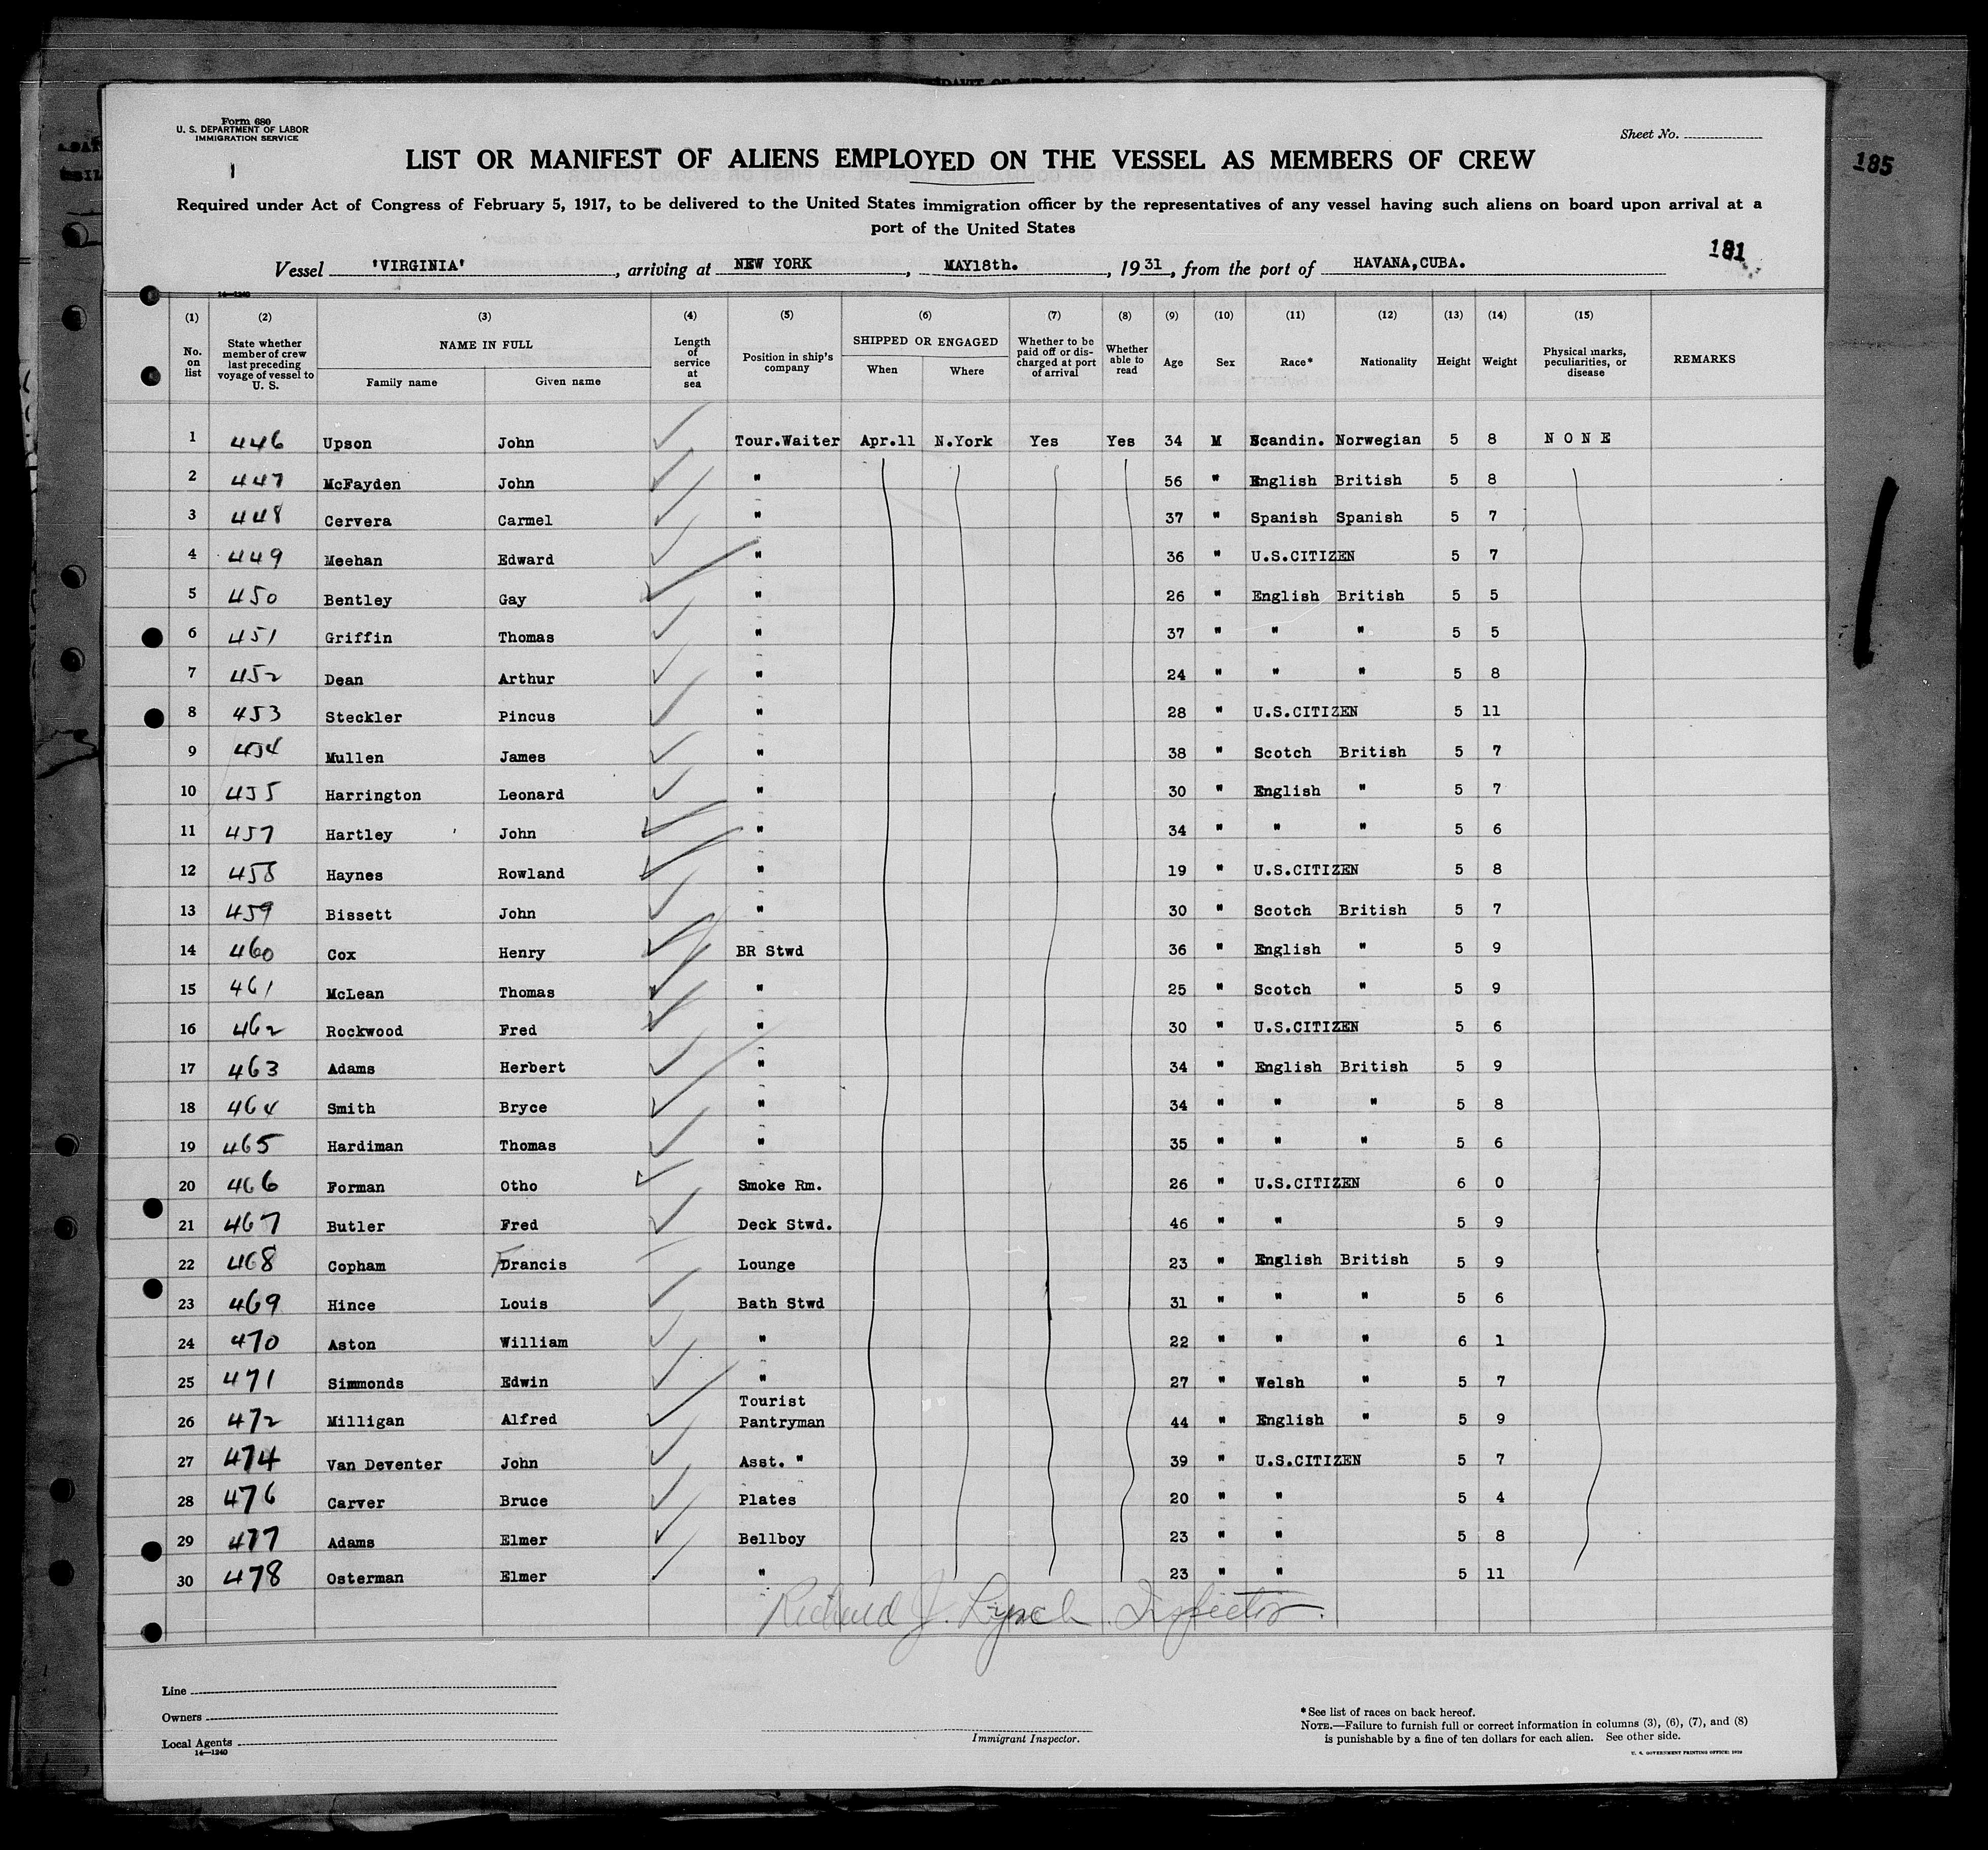 Form 680
U. S. DEPARTMENT OF LABOR
IMMIGRATION SERVICE
Sheet No.
1
LIST OR MANIFEST OF ALIENS EMPLOYED ON THE VESSEL AS MEMBERS OF CREW
185
Required under Act of Congress of February 5, 1917, to be delivered to the United States immigration officer by the representatives of any vessel having such aliens on board upon arrival at a
port of the United States
181
Vessel 'VIRGINIA', arriving at NEW YORK, MAY18th., 1931, from the port of HAVANA,CUBA.
14—1240
(1) (2) (3) (4) (5) (6) (7) (8) (9) (10) (11) (12) (13) (14) (15)
No. on list
State whether member of crew last preceding voyage of vessel to U. S.
NAME IN FULL
Family name Given name
Length of service at sea
Position in ship's company
SHIPPED OR ENGAGED
When Where
Whether to be paid off or discharged at port of arrival
Whether able to read
Age Sex Race* Nationality Height Weight
Physical marks, peculiarities, or disease
REMARKS
1 446 Upson John Tour.Waiter Apr.11 N.York Yes Yes 34 M Scandin. Norwegian 5 8 NONE
2 447 McFayden John " 56 " English British 5 8
3 448 Cervera Carmel " 37 " Spanish Spanish 5 7
4 449 Meehan Edward " 36 " U.S.CITIZEN 5 7
5 450 Bentley Gay " 26 " English British 5 5
6 451 Griffin Thomas " 37 " " " 5 5
7 452 Dean Arthur " 24 " " " 5 8
8 453 Steckler Pincus " 28 " U.S.CITIZEN 5 11
9 454 Mullen James " 38 " Scotch British 5 7
10 455 Harrington Leonard " 30 " English " 5 7
11 457 Hartley John " 34 " " " 5 6
12 458 Haynes Rowland " 19 " U.S.CITIZEN 5 8
13 459 Bissett John " 30 " Scotch British 5 7
14 460 Cox Henry BR Stwd 36 " English " 5 9
15 461 McLean Thomas " 25 " Scotch " 5 9
16 462 Rockwood Fred " 30 " U.S.CITIZEN 5 6
17 463 Adams Herbert " 34 " English British 5 9
18 464 Smith Bryce " 34 " " " 5 8
19 465 Hardiman Thomas " 35 " " " 5 6
20 466 Forman Otho Smoke Rm. 26 " U.S.CITIZEN 6 0
21 467 Butler Fred Deck Stwd. 46 " " 5 9
22 468 Copham Francis Lounge 23 " English British 5 9
23 469 Hince Louis Bath Stwd 31 " " " 5 6
24 470 Aston William " 22 " " " 6 1
25 471 Simmonds Edwin " 27 " Welsh " 5 7
26 472 Milligan Alfred Tourist Pantryman 44 " English " 5 9
27 474 Van Deventer John Asst. " 39 " U.S.CITIZEN 5 7
28 476 Carver Bruce Plates 20 " " 5 4
29 477 Adams Elmer Bellboy 23 " " 5 8
30 478 Osterman Elmer " 23 " " 5 11
Richard J. Lynch Inspector.
Line
Owners
Local Agents
14—1240
Immigrant Inspector.
*See list of races on back hereof.
NOTE.—Failure to furnish full or correct information in columns (3), (6), (7), and (8)
is punishable by a fine of ten dollars for each alien. See other side.
U. S. GOVERNMENT PRINTING OFFICE: 1929